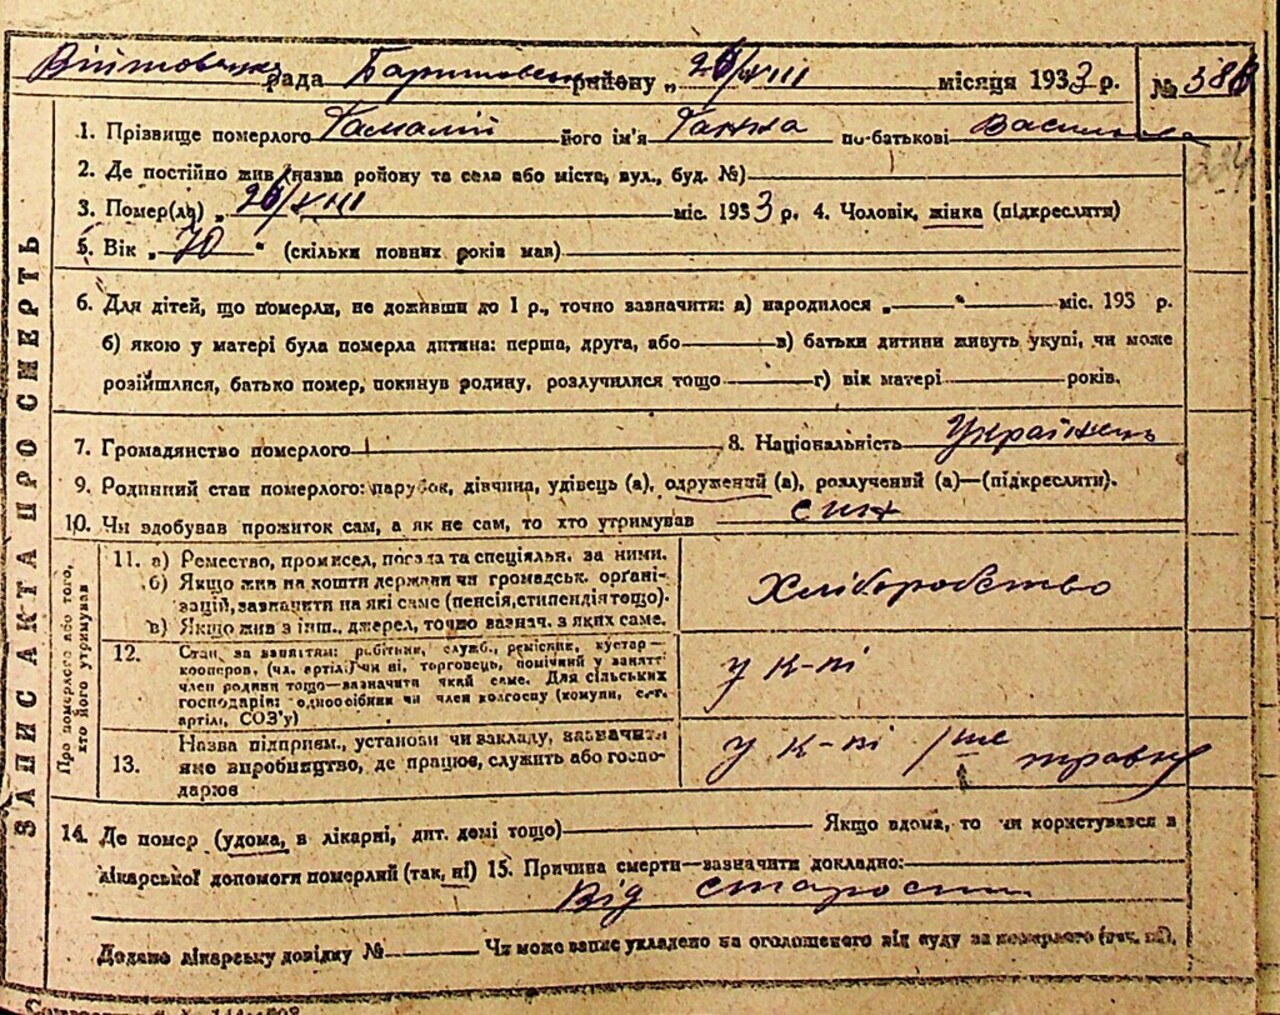 Війтовецька рада Баришівськ району „26/VIII місяця 1933 р. № 388
1. Прізвище померлого Гамалій його ім'я Ганна по-батькові Василівна
2. Де постійно жив (назва ройону та села або міста, вул., буд. №)
3. Помер(ла) „26/VIII міс. 1933 р. 4. Чоловік, жінка (підкреслити)
5. Вік „70" (скільки повних років мав)
6. Для дітей, що померли, не доживши до 1 р., точно зазначити: а) народилося „ " міс. 193 р.
б) якою у матері була померла дитина: перша, друга, або в) батьки дитини живуть укупі, чи може
розійшлися, батько помер, покинув родину, розлучилися тощо г) вік матері років.
7. Громадянство померлого 8. Національність Українець
9. Родинний стан померлого: парубок, дівчина, удівець (а), одружений (а), розлучений (а)—(підкреслити).
10. Чи здобував прожиток сам, а як не сам, то хто утримував син
ЗАПИС АКТА ПРО СМЕРТЬ
Про померлого або того,
хто його утримував
11. а) Ремество, промисел, посада та спеціяльн. за ними.
б) Якщо жив на кошти держави чи громадськ. органі-
зацій, зазначити на які саме (пенсія, стипендія тощо).
в) Якщо жив з інш., джерел, точно вазнач. з яких саме.
Хліборобство
12. Стан за заняттям: робітник, служб., ремісник, кустар—
кооперов, (чл. артілі) чи ні, торговець, помічний у занятті
член родини тощо—зазначити який саме. Для сільських
господарів: одноосібник чи член колгоспу (комуни, с.-г.
артілі, СОЗ'у)
у к-пі
13. Назва підприєм., установи чи вакладу, вазначити
яке виробництво, де працює, служить або госпо-
дарює
у к-пі 1ше травня
14. Де помер (удома, в лікарні, дит. домі тощо) Якщо вдома, то чи користувався в
лікарської допомоги померлий (так, ні) 15. Причина смерти—зазначити докладно:
Від старости
Додано лікарську довідку № Чи може вапис укладено на оголошеного від суду за померлого (так, ні).